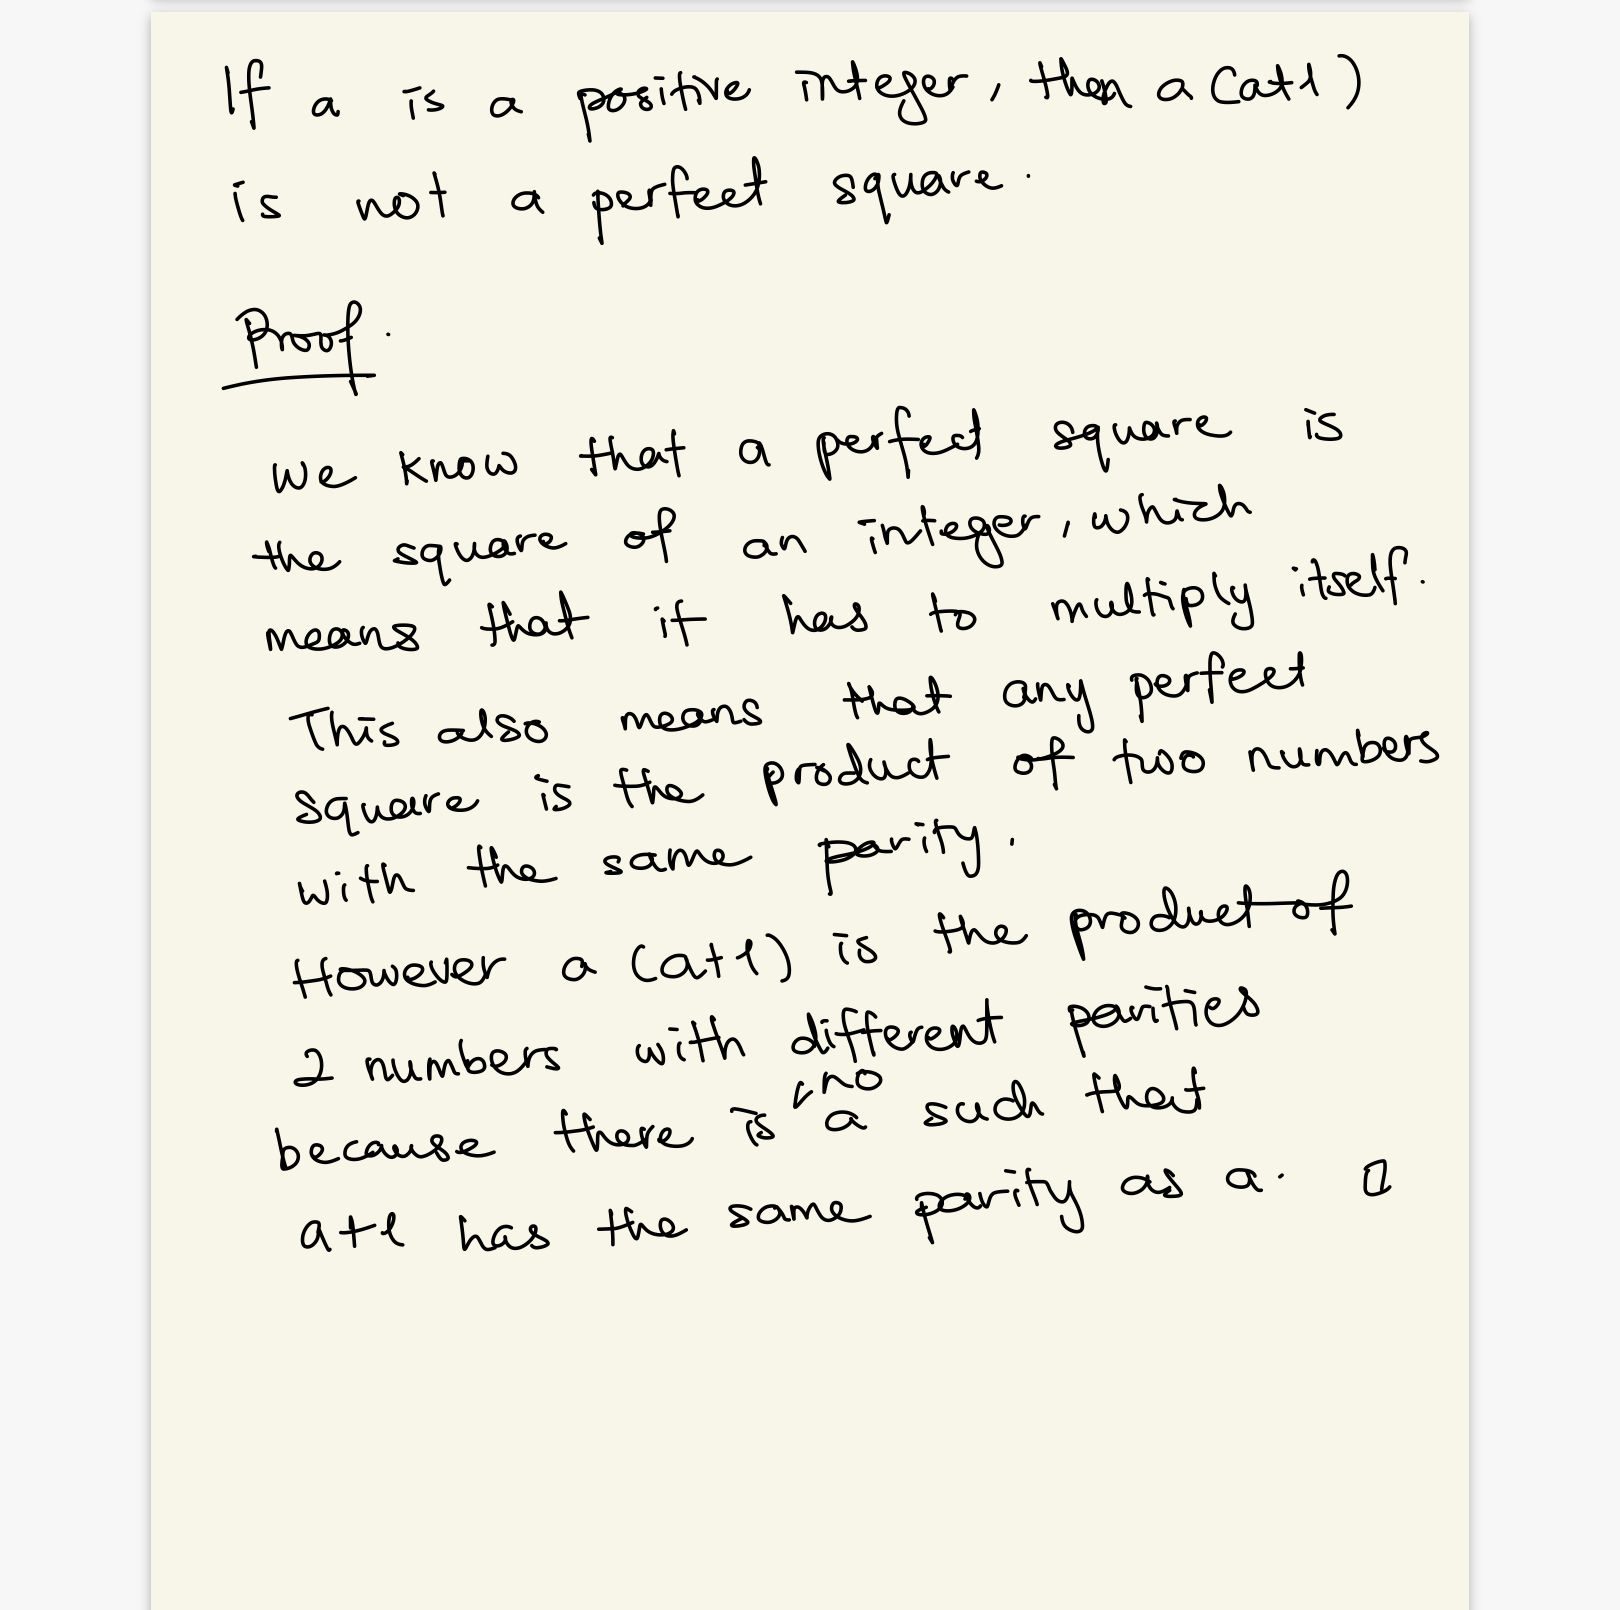 If a is a positive integer, then a (a+1)
is not a perfect square.
Proof.
We know that a perfect square is
the square of an integer, which
means that it has to multiply itself.
This also means that any perfect
square is the product of two numbers
with the same parity.
However a (a+1) is the product of
2 numbers with different parities
no
because there is a such that
a+1 has the same parity as a. □